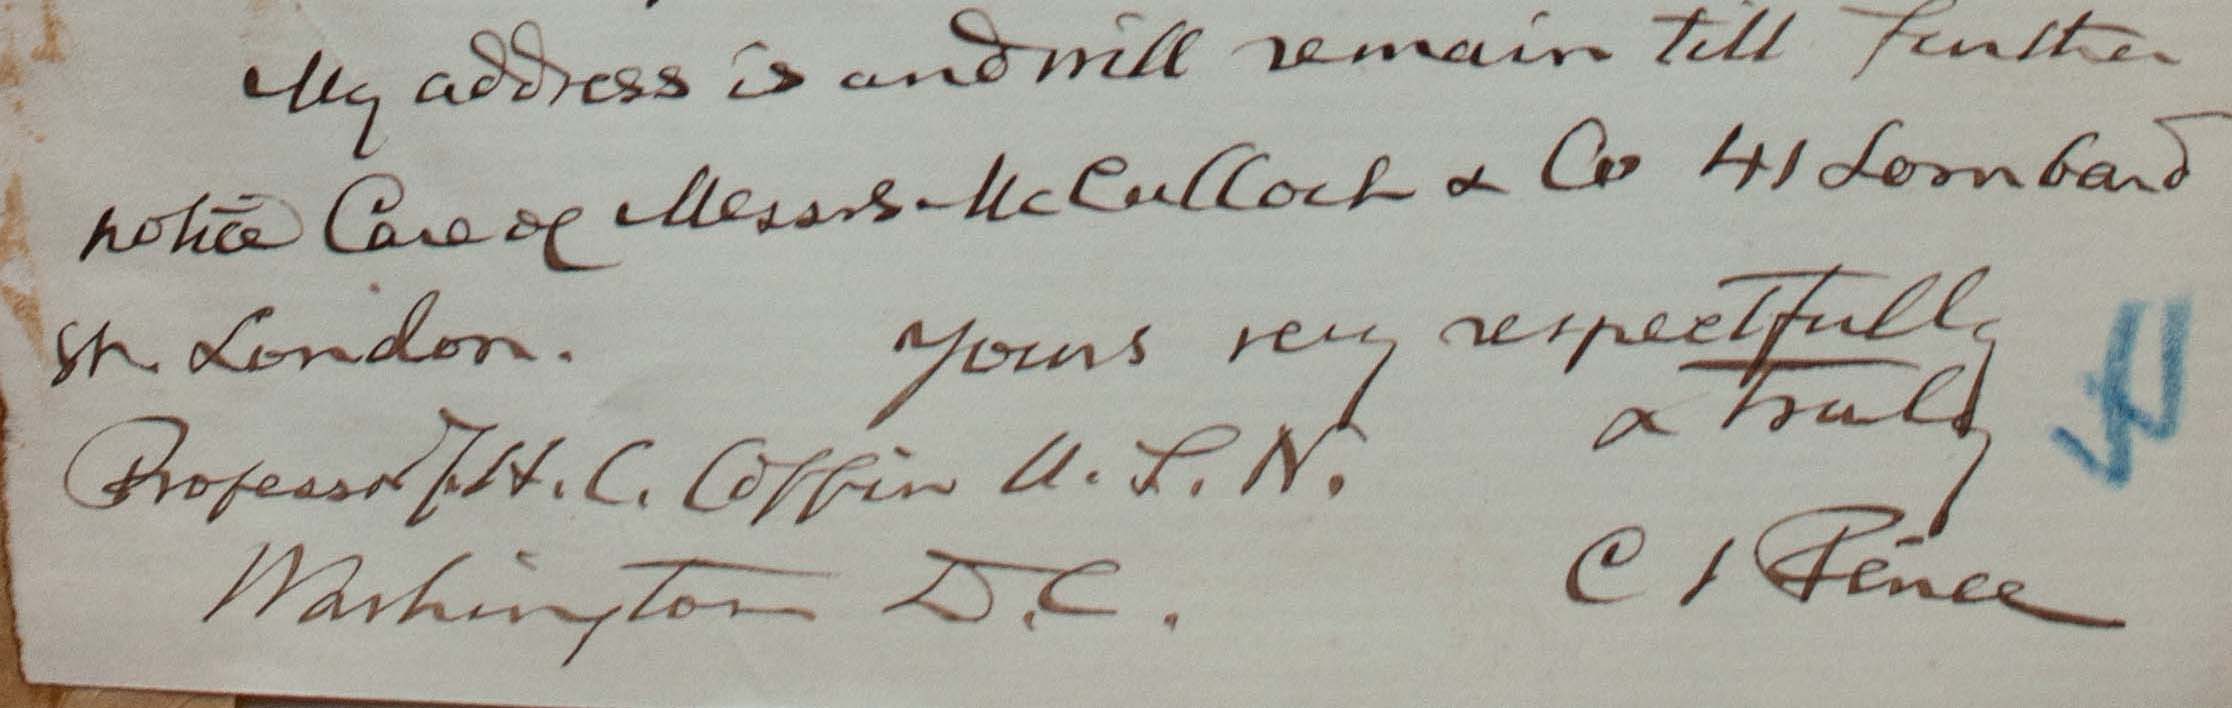 My address is and will remain till further
notice Care of Messrs McCulloch & Co 41 Lombard
St. London. Yours very respectfully
& truly
Professor J. H. C. Coffin U. S. N.
Washington D.C.
C S Peirce